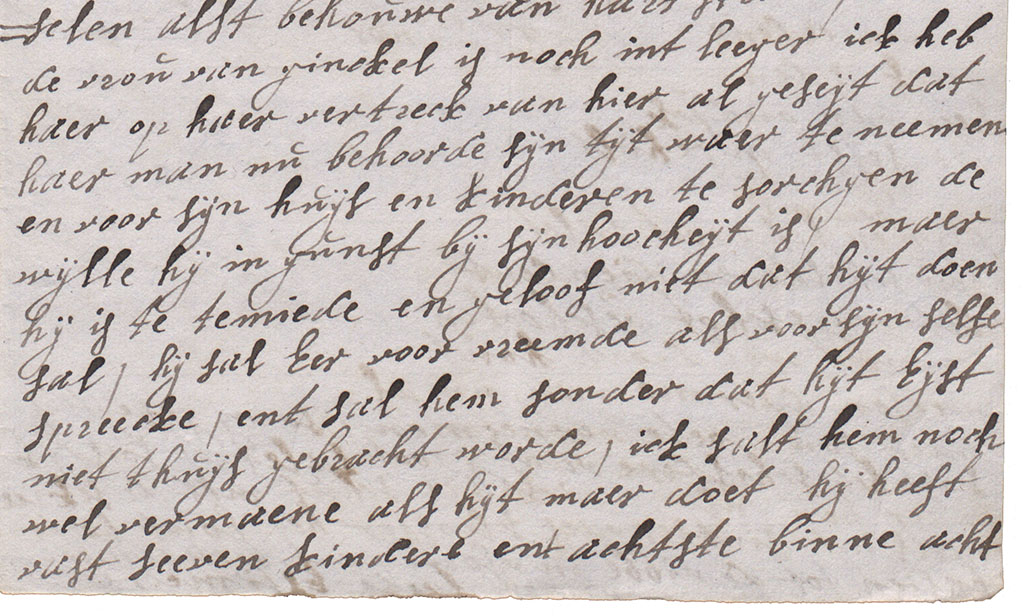 selen alst behouwe van haer
de vrou van ginckel is noch int leeger ick heb
haer op haer vertreck van hier al geseyt dat
haer man nu behoorde sijn tijt waer te neemen
en voor sijn huijs en kinderen te sorchgen de
wijlle hij in gunst bij sijn hoocheijt is, maer
hij is te temiede en geloof niet dat hijt doen
sal, hij sal eer voor vreemde als voor sijn selfe
spreecke, ent sal hem sonder dat hijt eijst
niet thuijs gebracht worde, ick salt hem noch
wel vermaene als hijt maer doet hij heeft
vast seeven kindere ent achtste binne acht